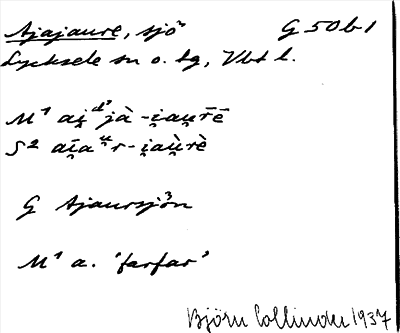 Ajajaure, sjö³ G 50 b 1
Lycksele sn o. tg, Vbt l.
M¹ ai̯ᵈ'jà-i̯au̯rē
S² aīaᵘr-i̯au̯rè
G Ajaursjö³n
M¹ a. 'farfar'
Björn Collinder 1937